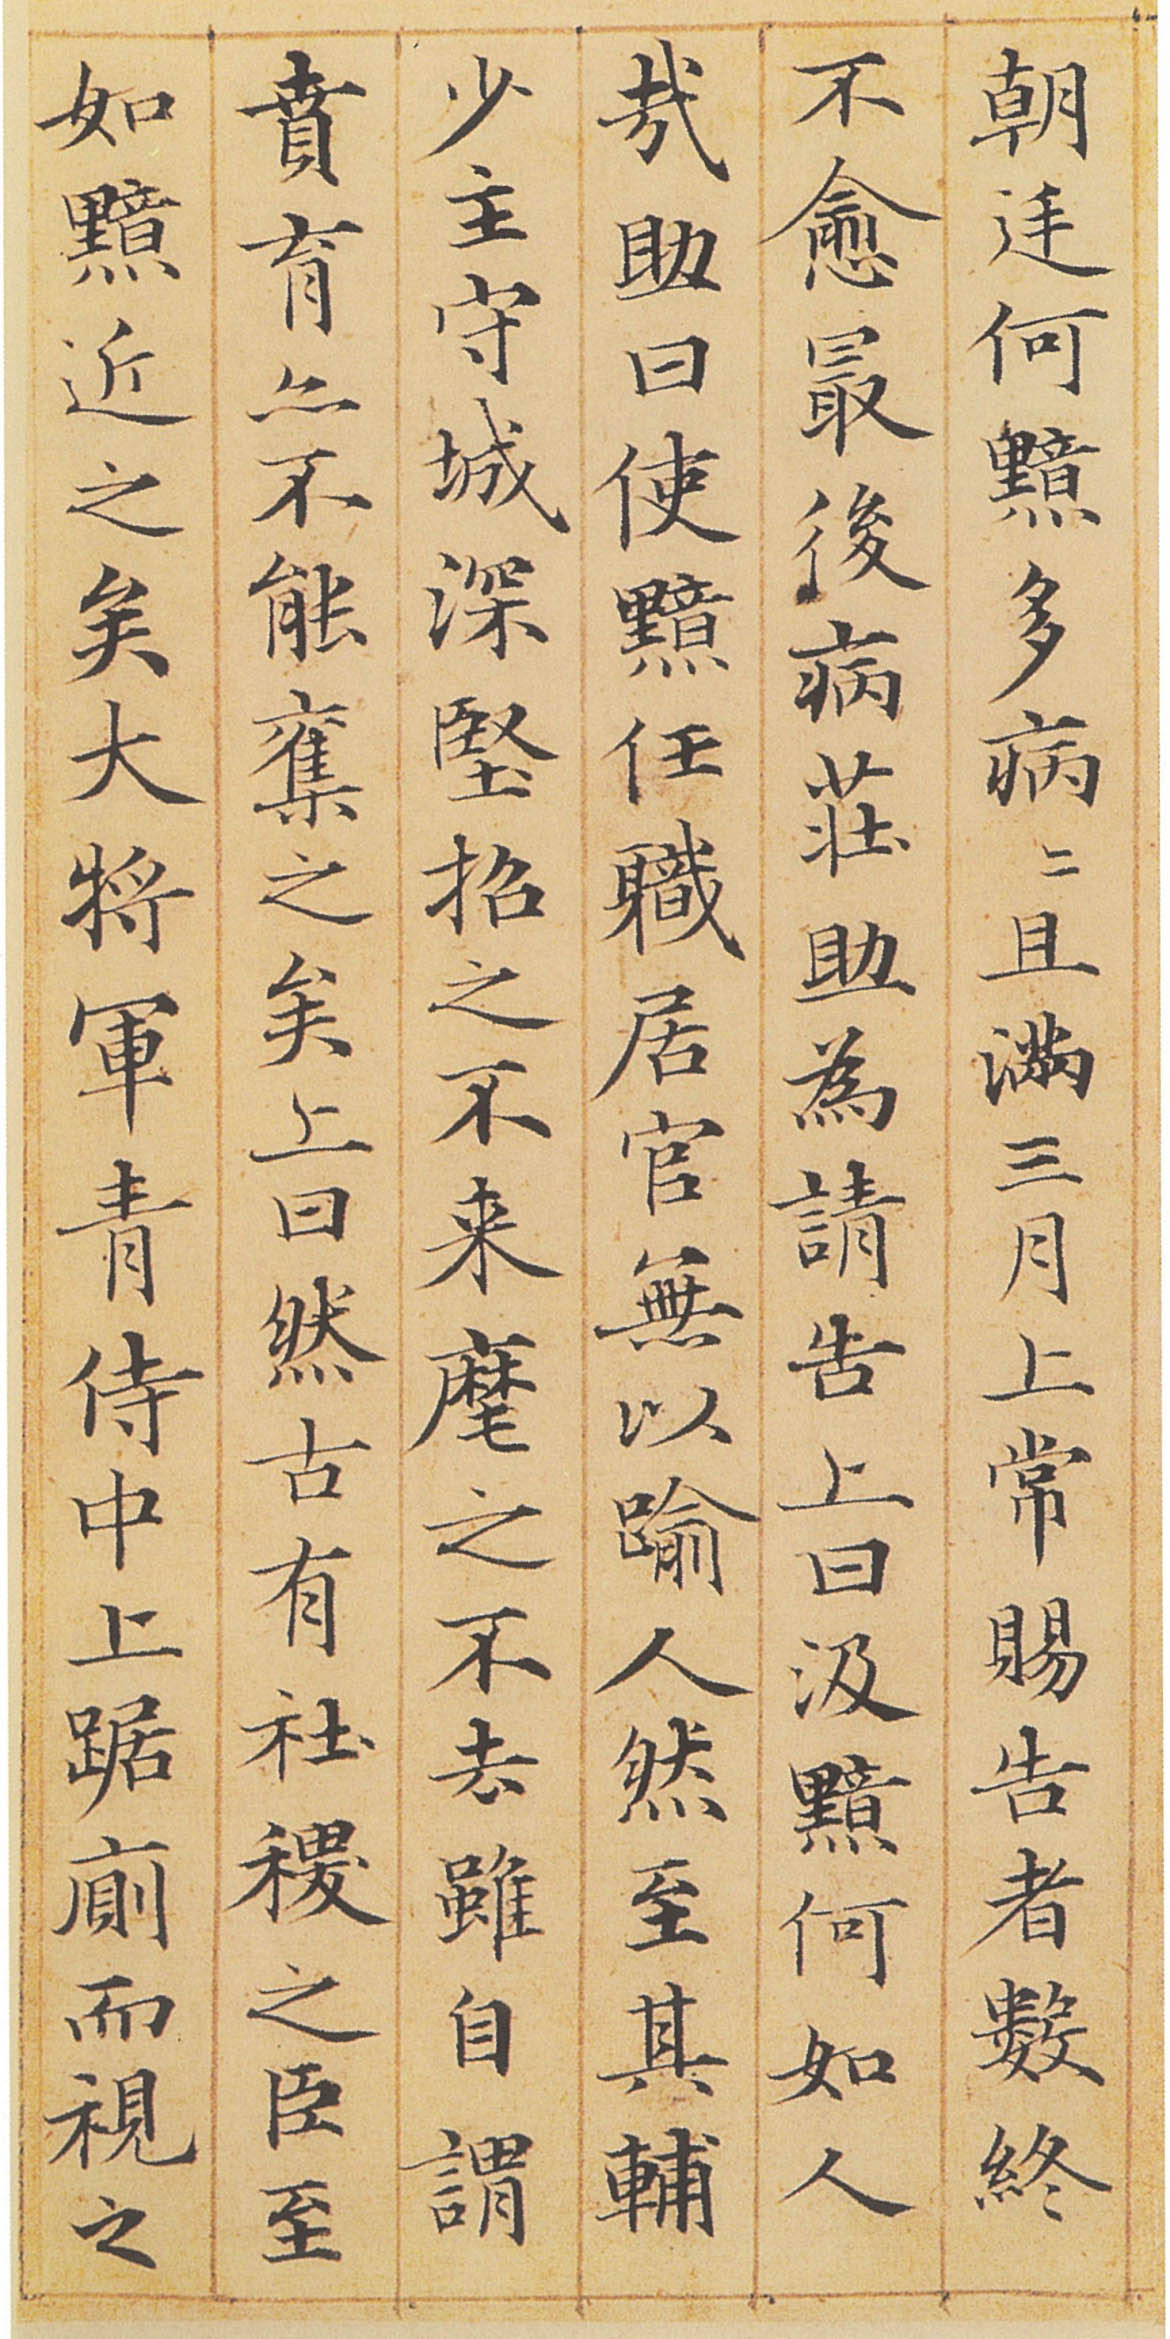 朝廷何黯多病〻且滿三月上常賜告者數終
不愈最後病莊助為請告上曰汲黯何如人
哉助曰使黯任職居官無以踰人然至其輔
少主守城深堅招之不来麾之不去雖自謂
賁育亦不能奪之矣上曰然古有社稷之臣至
如黯近之矣大将軍青侍中上踞廁而視之